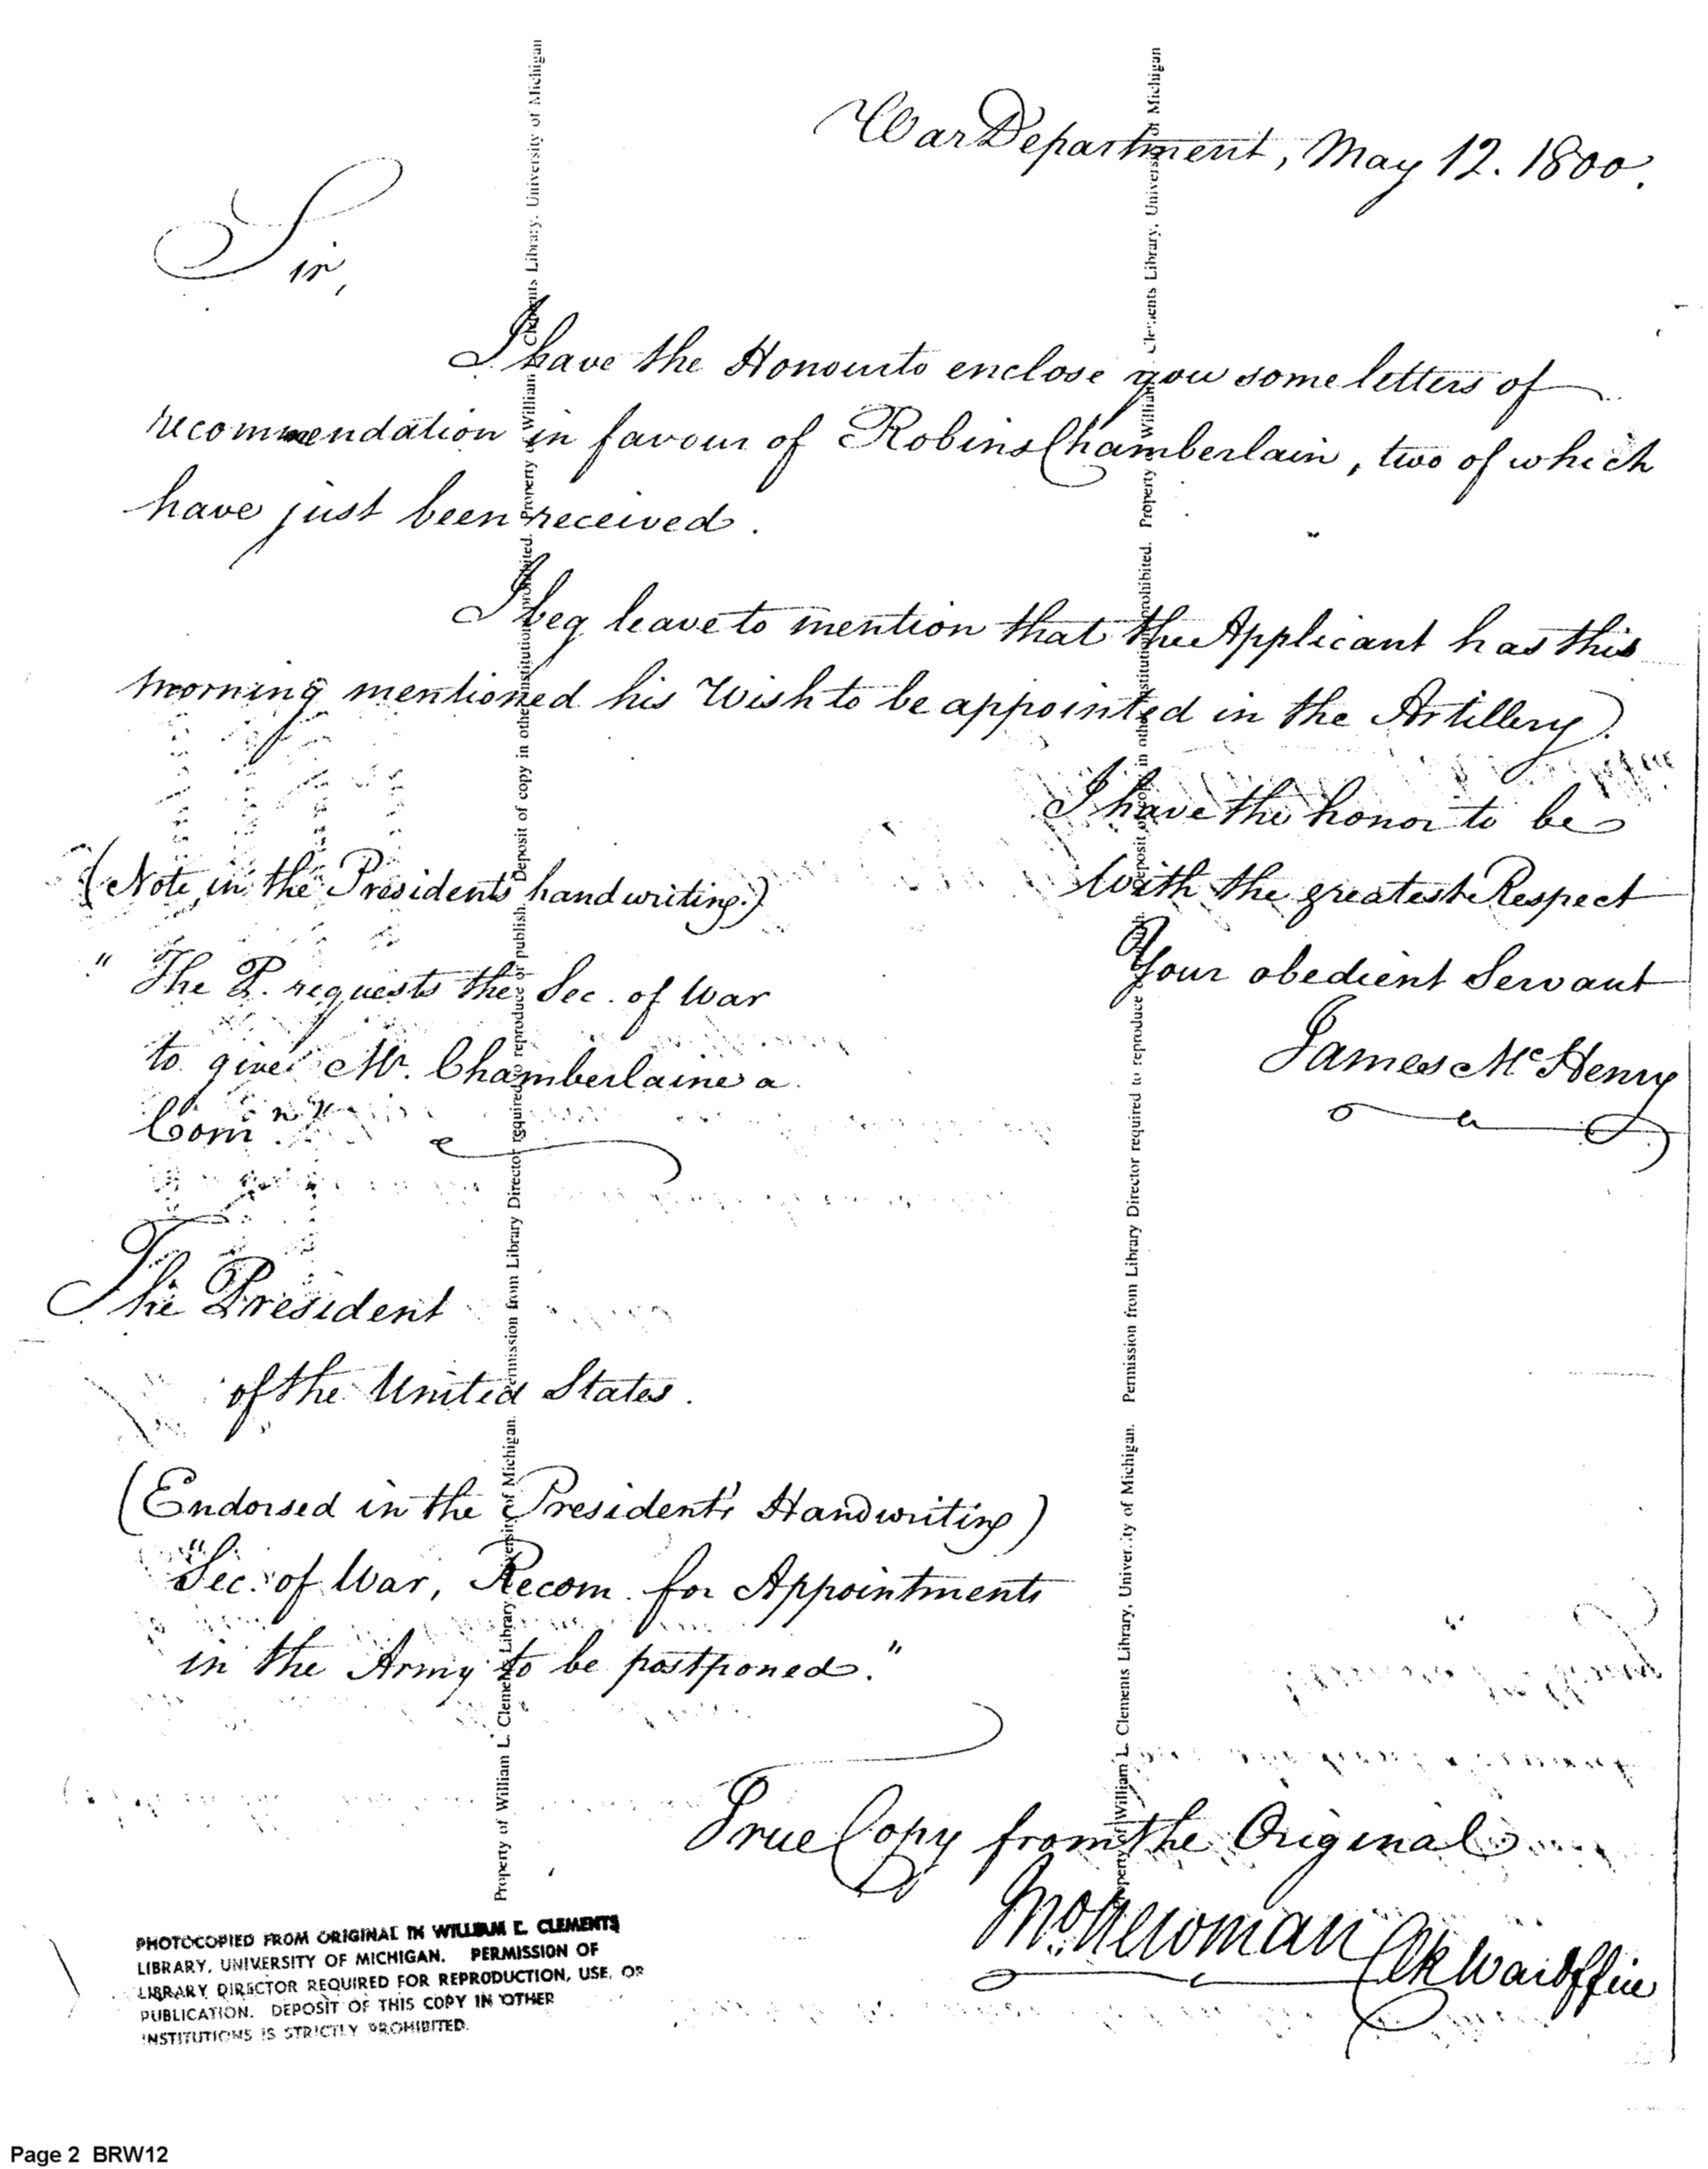 War Department, May 12. 1800.
Sir,
I have the Honour to enclose you some letters of
recommendation in favour of Robins Chamberlain, two of which
have just been received.
I beg leave to mention that the Applicant has this
morning mentioned his Wish to be appointed in the Artillery.
I have the honor to be
With the greatest Respect
Your obedient Servant
James McHenry
(Note in the Presidents handwriting.)
" The P. requests the Sec. of War
to give Mr. Chamberlaine a
Comn
The President
of the United States.
(Endorsed in the President's Handwriting)
"Sec. of War, Recom. for Appointments
in the Army to be postponed."
True Copy from the Original
Newman Clk War Office
PHOTOCOPIED FROM ORIGINAL IN WILLIAM L. CLEMENTS
LIBRARY, UNIVERSITY OF MICHIGAN. PERMISSION OF
LIBRARY DIRECTOR REQUIRED FOR REPRODUCTION, USE, OR
PUBLICATION. DEPOSIT OF THIS COPY IN OTHER
INSTITUTIONS IS STRICTLY PROHIBITED.
Property of William L. Clements Library, University of Michigan. Permission from Library Director required to reproduce or publish. Deposit of copy in other institution prohibited. Property of William L. Clements Library, University of Michigan
Property of William L. Clements Library, University of Michigan. Permission from Library Director required to reproduce or publish. Deposit of copy in other institution prohibited. Property of William L. Clements Library, University of Michigan
Page 2 BRW12